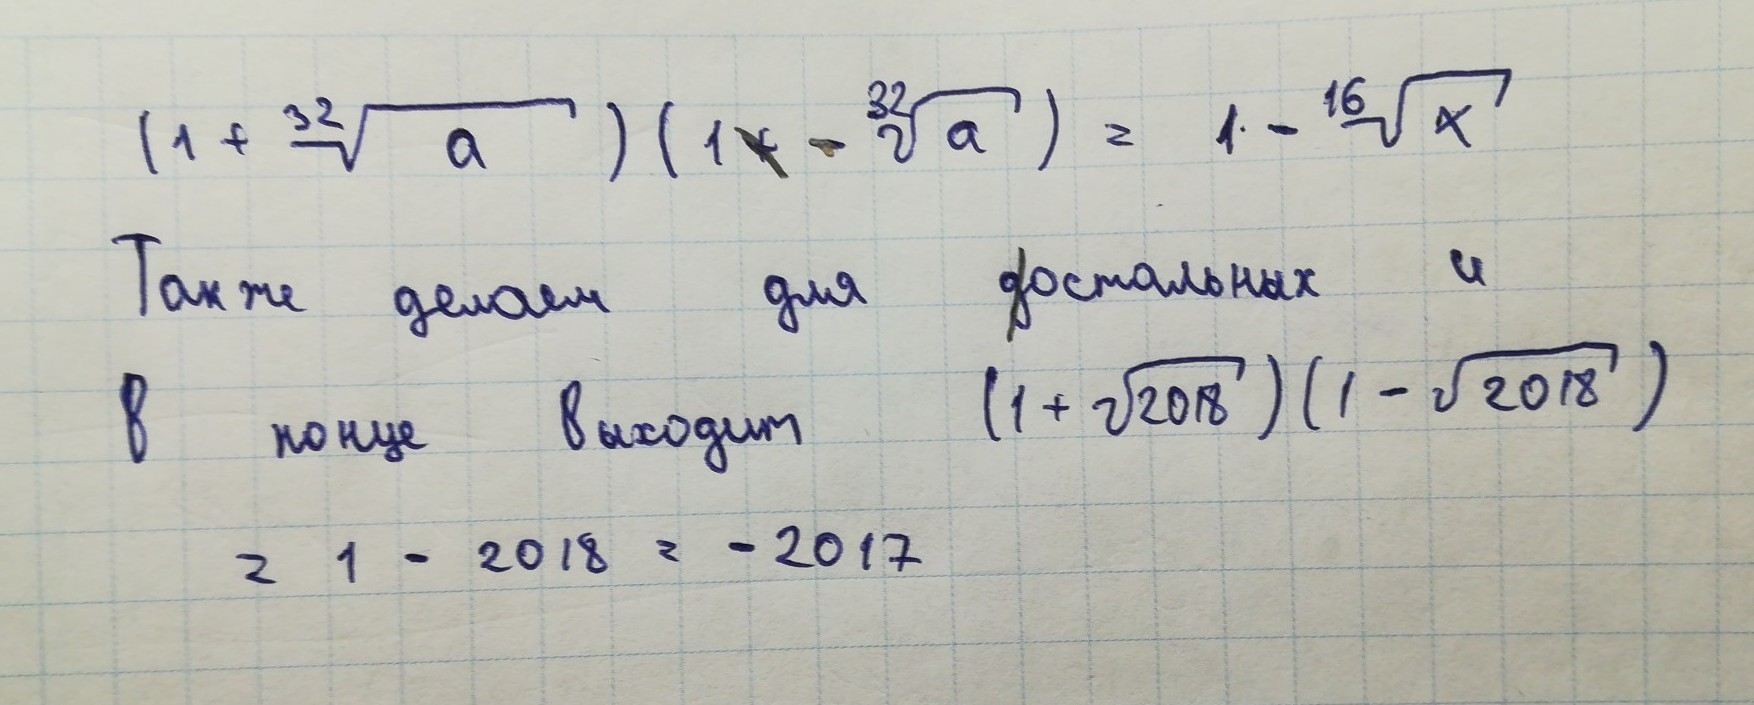 (1 + ³²√a)(1 - ³²√a) = 1 - ¹⁶√x
Также делаем для остальных и
в конце выходит (1 + √2018)(1 - √2018)
= 1 - 2018 = -2017